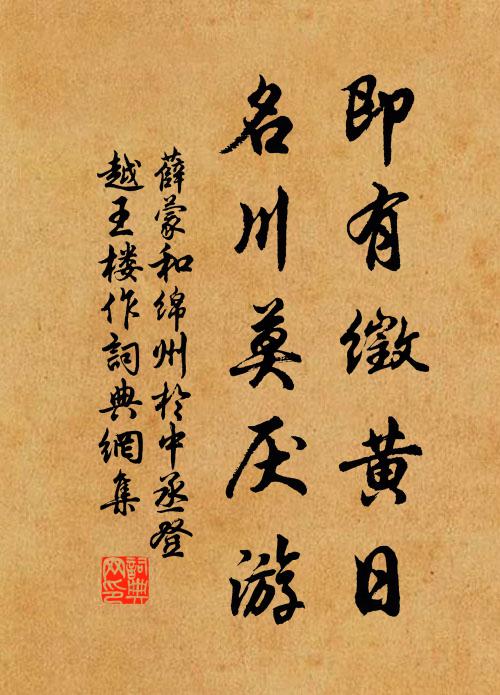 即有徵黄日
名川莫厌游
薛蒙和绵州於中丞登
越王楼作詞典網集
詞典网印